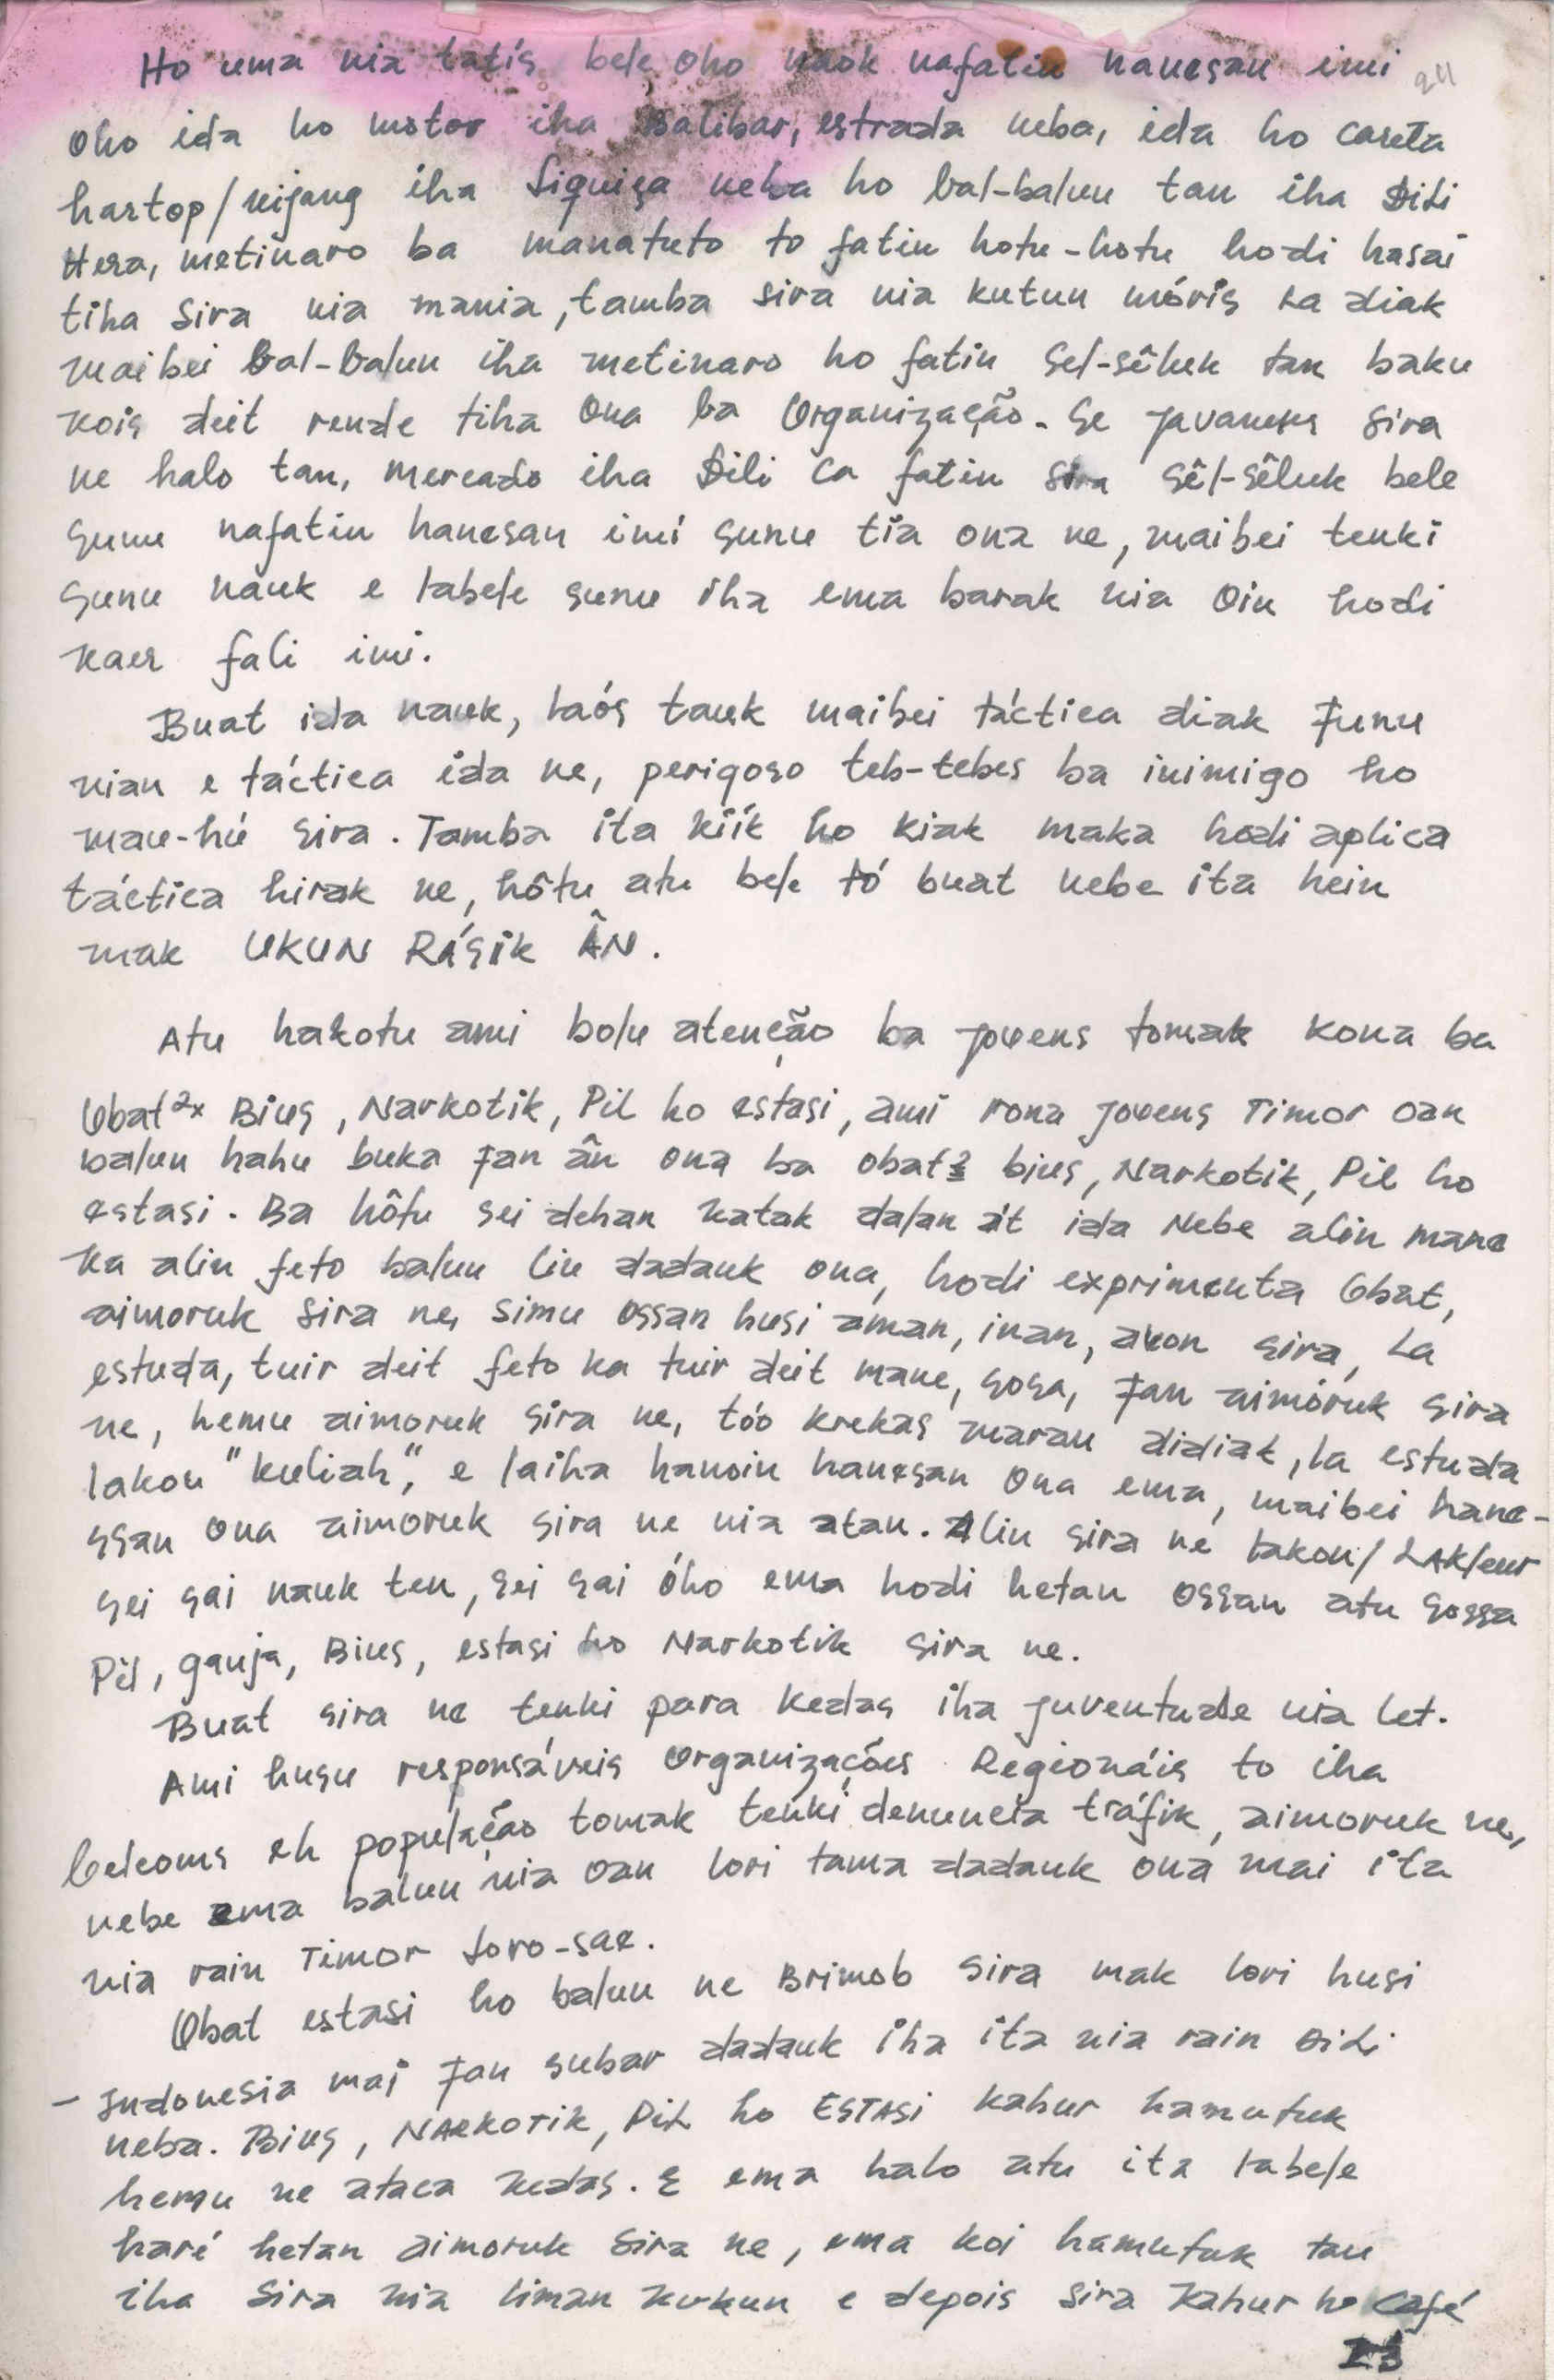 Ho uma nia tatís bele oho naok nafatin hanesan imi
oho ida ho motor iha Balibar, estrada neba, ida ho careta
hartop/kijang iha Siquiça neba ho bal-balun tan iha Dili
Hera, metinaro ba manatuto to fatin hotu-hotu hodi hasai
tiha Sira nia mania, tamba sira nia kutun móris La diak
maibei bal-balun iha metinaro ho fatin Sel-sêluk tan baku
kois deit rende tiha Ona ba Organização. Se Javanes sira
ne halo tan, mercado iha Dili ca fatin sira sêl-sêluk bele
sunu nafatin hanesan imi sunu tia ona ne, maibei tenki
Sunu nauk e labele sunu iha ema barak nia Oin hodi
kaer fali imi.
Buat ida nauk, laós tauk maibei táctica diak Funu
nian e táctica ida ne, perigoso teb-tebes ba inimigo ho
mau-hú sira. Tamba ita kiík ho kiak maka hodi aplica
táctica hirak ne, hôtu atu bele tó buat nebe ita hein
mak UKUN RÁSIK ÂN.
Atu hakotu ami bolu atenção ba Jovens tomak kona ba
Obat 2x Bius, Narkotik, Pil ho estasi, ami rona Jovens Timor oan
balun hahu buka Fan ân ona ba obat2 bius, Narkotik, Pil ho
estasi. Ba hôtu sei dehan katak dalan át ida Nebe alin mane
ka alin feto balun liu dadauk ona, hodi exprimenta Obat,
aimoruk sira ne, simu ossan husi aman, inan, avon sira, La
estuda, tuir deit feto ka tuir deit mane, sosa, Fan aimóruk sira
ne, hemu aimoruk sira ne, tóo krekas maran didiak, la estuda
lakon "kuliah", e laiha hanoin hanesan Ona ema, maibei hane-
ssan ona aimoruk sira ne nia atan. Alin sira ne lakon/LAKleur
sei sai nauk ten, sei sai óho ema hodi hetan ossan atu sossa
Pil, ganja, Bius, estasi ho Narkotik sira ne.
Buat sira ne tenki para kedas iha juventude nia let.
Ami husu responsáveis Organizações Regionáis to iha
beleoms eh população tomak tenki denuncia tráfik, aimoruk ne,
nebe ema balun nia oan lori tama dadauk ona mai ita
nia rain Timor loro-sae.
Obat estasi ho balun ne Brimob sira mak lori husi
- Indonesia mai Fan subar dadauk iha ita nia rain Dili
neba. Bius, NARKOTIK, PiL ho ESTASi kahur hamutuk
hemu ne ataca kedas. E ema halo atu ita labele
haré hetan aimoruk Sira ne, ema koi hamutuk tau
iha Sira nia liman kukun e depois sira kahur ho café